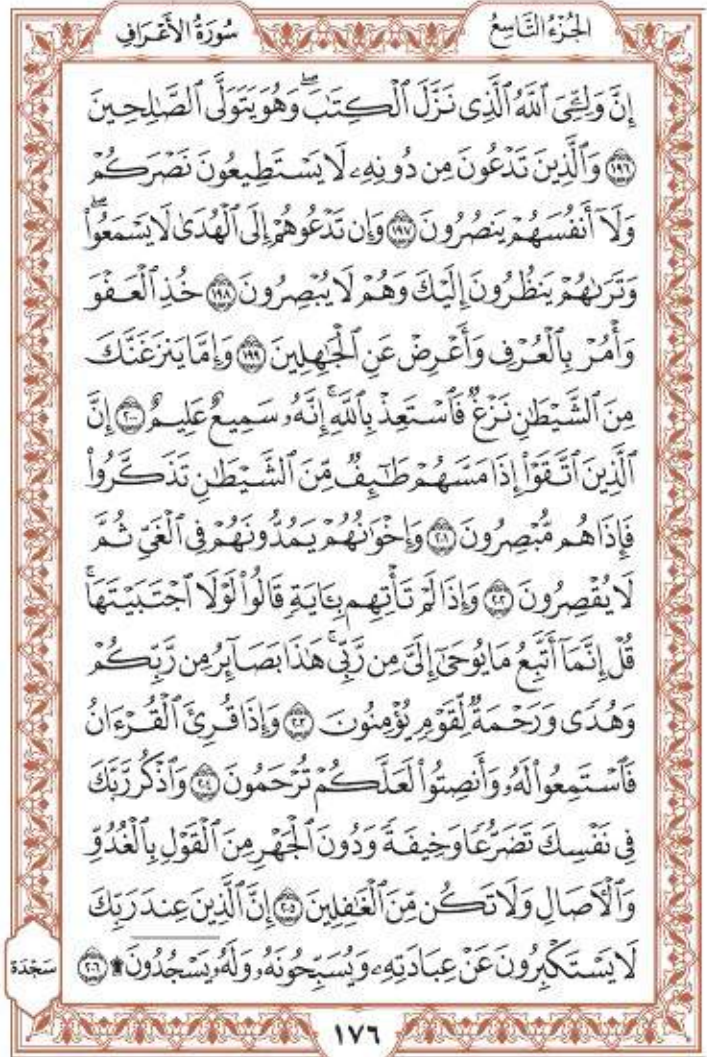 سُورَةُ الأَعْرَافِ
الجُزْءُ التَّاسِعُ
إِنَّ وَلِـِّۧيَ ٱللَّهُ ٱلَّذِى نَزَّلَ ٱلْكِتَٰبَۖ وَهُوَ يَتَوَلَّى ٱلصَّٰلِحِينَ
١٩٦ وَٱلَّذِينَ تَدْعُونَ مِن دُونِهِۦ لَا يَسْتَطِيعُونَ نَصْرَكُمْ
وَلَآ أَنفُسَهُمْ يَنصُرُونَ ١٩٧ وَإِن تَدْعُوهُمْ إِلَى ٱلْهُدَىٰ لَا يَسْمَعُوا۟ۖ
وَتَرَىٰهُمْ يَنظُرُونَ إِلَيْكَ وَهُمْ لَا يُبْصِرُونَ ١٩٨ خُذِ ٱلْعَفْوَ
وَأْمُرْ بِٱلْعُرْفِ وَأَعْرِضْ عَنِ ٱلْجَٰهِلِينَ ١٩٩ وَإِمَّا يَنزَغَنَّكَ
مِنَ ٱلشَّيْطَٰنِ نَزْغٌ فَٱسْتَعِذْ بِٱللَّهِۚ إِنَّهُۥ سَمِيعٌ عَلِيمٌ ٢٠٠ إِنَّ
ٱلَّذِينَ ٱتَّقَوْا۟ إِذَا مَسَّهُمْ طَٰٓئِفٌ مِّنَ ٱلشَّيْطَٰنِ تَذَكَّرُوا۟
فَإِذَا هُم مُّبْصِرُونَ ٢٠١ وَإِخْوَٰنُهُمْ يَمُدُّونَهُمْ فِى ٱلْغَىِّ ثُمَّ
لَا يُقْصِرُونَ ٢٠٢ وَإِذَا لَمْ تَأْتِهِم بِـَٔايَةٍ قَالُوا۟ لَوْلَا ٱجْتَبَيْتَهَاۚ
قُلْ إِنَّمَآ أَتَّبِعُ مَا يُوحَىٰٓ إِلَىَّ مِن رَّبِّىۚ هَٰذَا بَصَآئِرُ مِن رَّبِّكُمْ
وَهُدًى وَرَحْمَةٌ لِّقَوْمٍ يُؤْمِنُونَ ٢٠٣ وَإِذَا قُرِئَ ٱلْقُرْءَانُ
فَٱسْتَمِعُوا۟ لَهُۥ وَأَنصِتُوا۟ لَعَلَّكُمْ تُرْحَمُونَ ٢٠٤ وَٱذْكُر رَّبَّكَ
فِى نَفْسِكَ تَضَرُّعًا وَخِيفَةً وَدُونَ ٱلْجَهْرِ مِنَ ٱلْقَوْلِ بِٱلْغُدُوِّ
وَٱلْءَاصَالِ وَلَا تَكُن مِّنَ ٱلْغَٰفِلِينَ ٢٠٥ إِنَّ ٱلَّذِينَ عِندَ رَبِّكَ
لَا يَسْتَكْبِرُونَ عَنْ عِبَادَتِهِۦ وَيُسَبِّحُونَهُۥ وَلَهُۥ يَسْجُدُونَ ۩ ٢٠٦
سَجْدَة
١٧٦